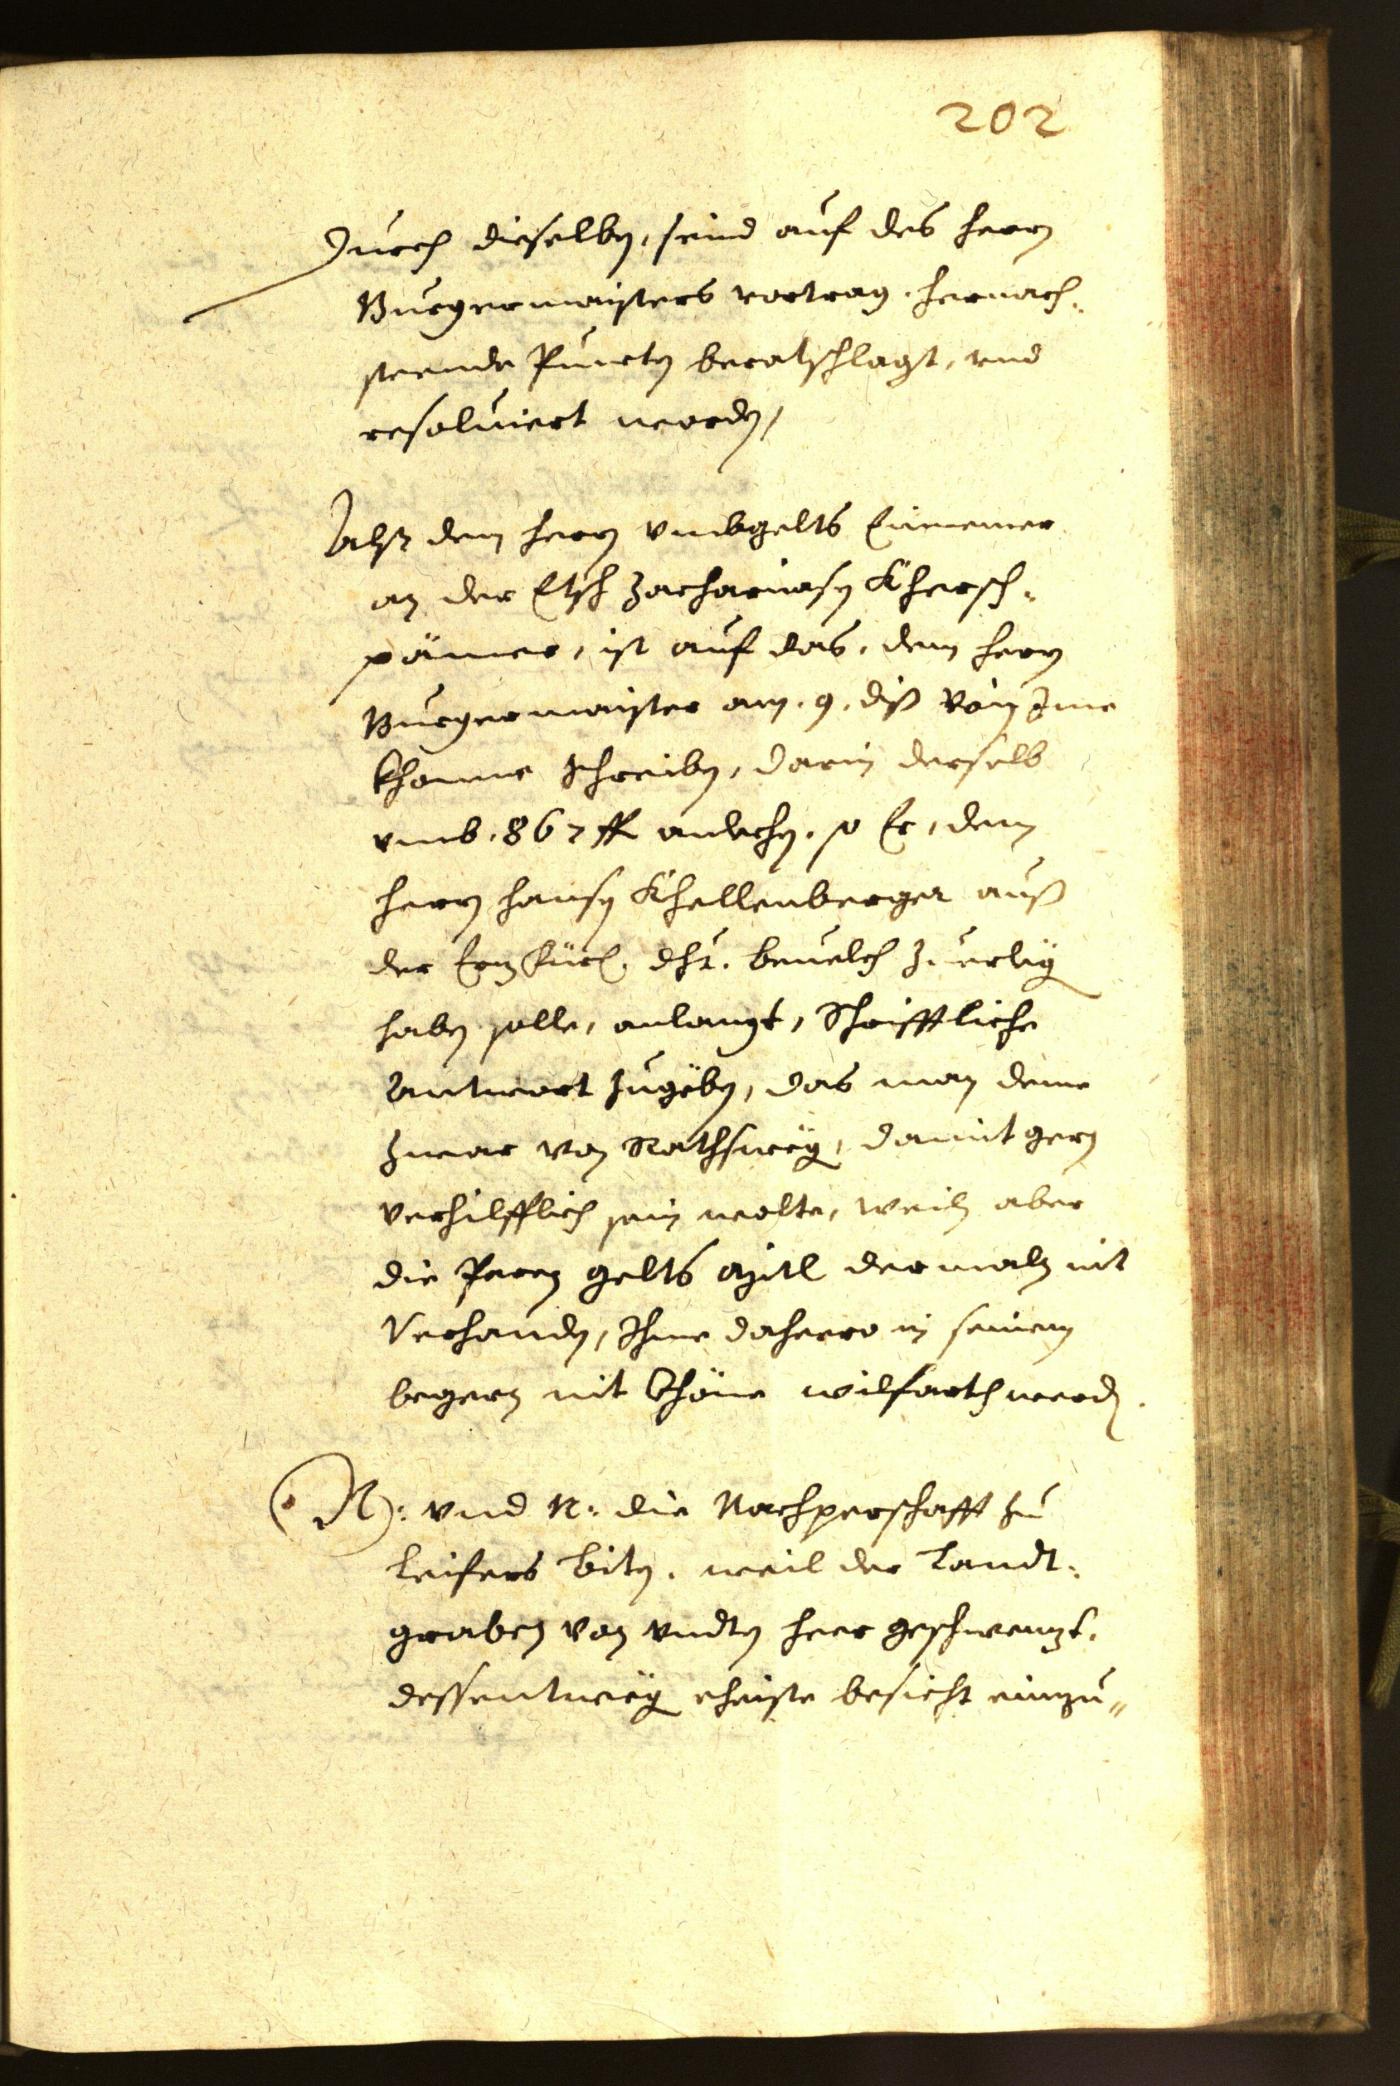 202
Durch dieselben, seind auf des herrn
Burgermaisters vortrag, hernach-
steende Puncten beratschlagt, vnd
resoluiert worden,
Alß dem herrn vmbgelts Einnemer
an der Etsch Zachariasen Khersch-
pämer, ist auf das, dem herrn
Burgermaister am .9. diß von Ime
khomme schreiben, darin derselb
vmb .867 fl anlehen, so Er, dem
herrn Hansen Khellenberger auß
der Frl: dht. beuelch zuerlegen
haben solle, anlangt, Schrifftliche
Antwort zugeben, das man deme
zwar von Rathswegen, damit gern
verhilfflich sein wolte, weiln aber
die Paren gelts mitl dermaln nit
Verhanden, Ihme dahero in seinem
begern nit khöne wilfarth werden.
N: vnd N: die Nachperschafft zu
Leifers biten, weil der Landt-
graben von vndten heer geschwenzt,
dessentwegen eheiste besicht einzu-